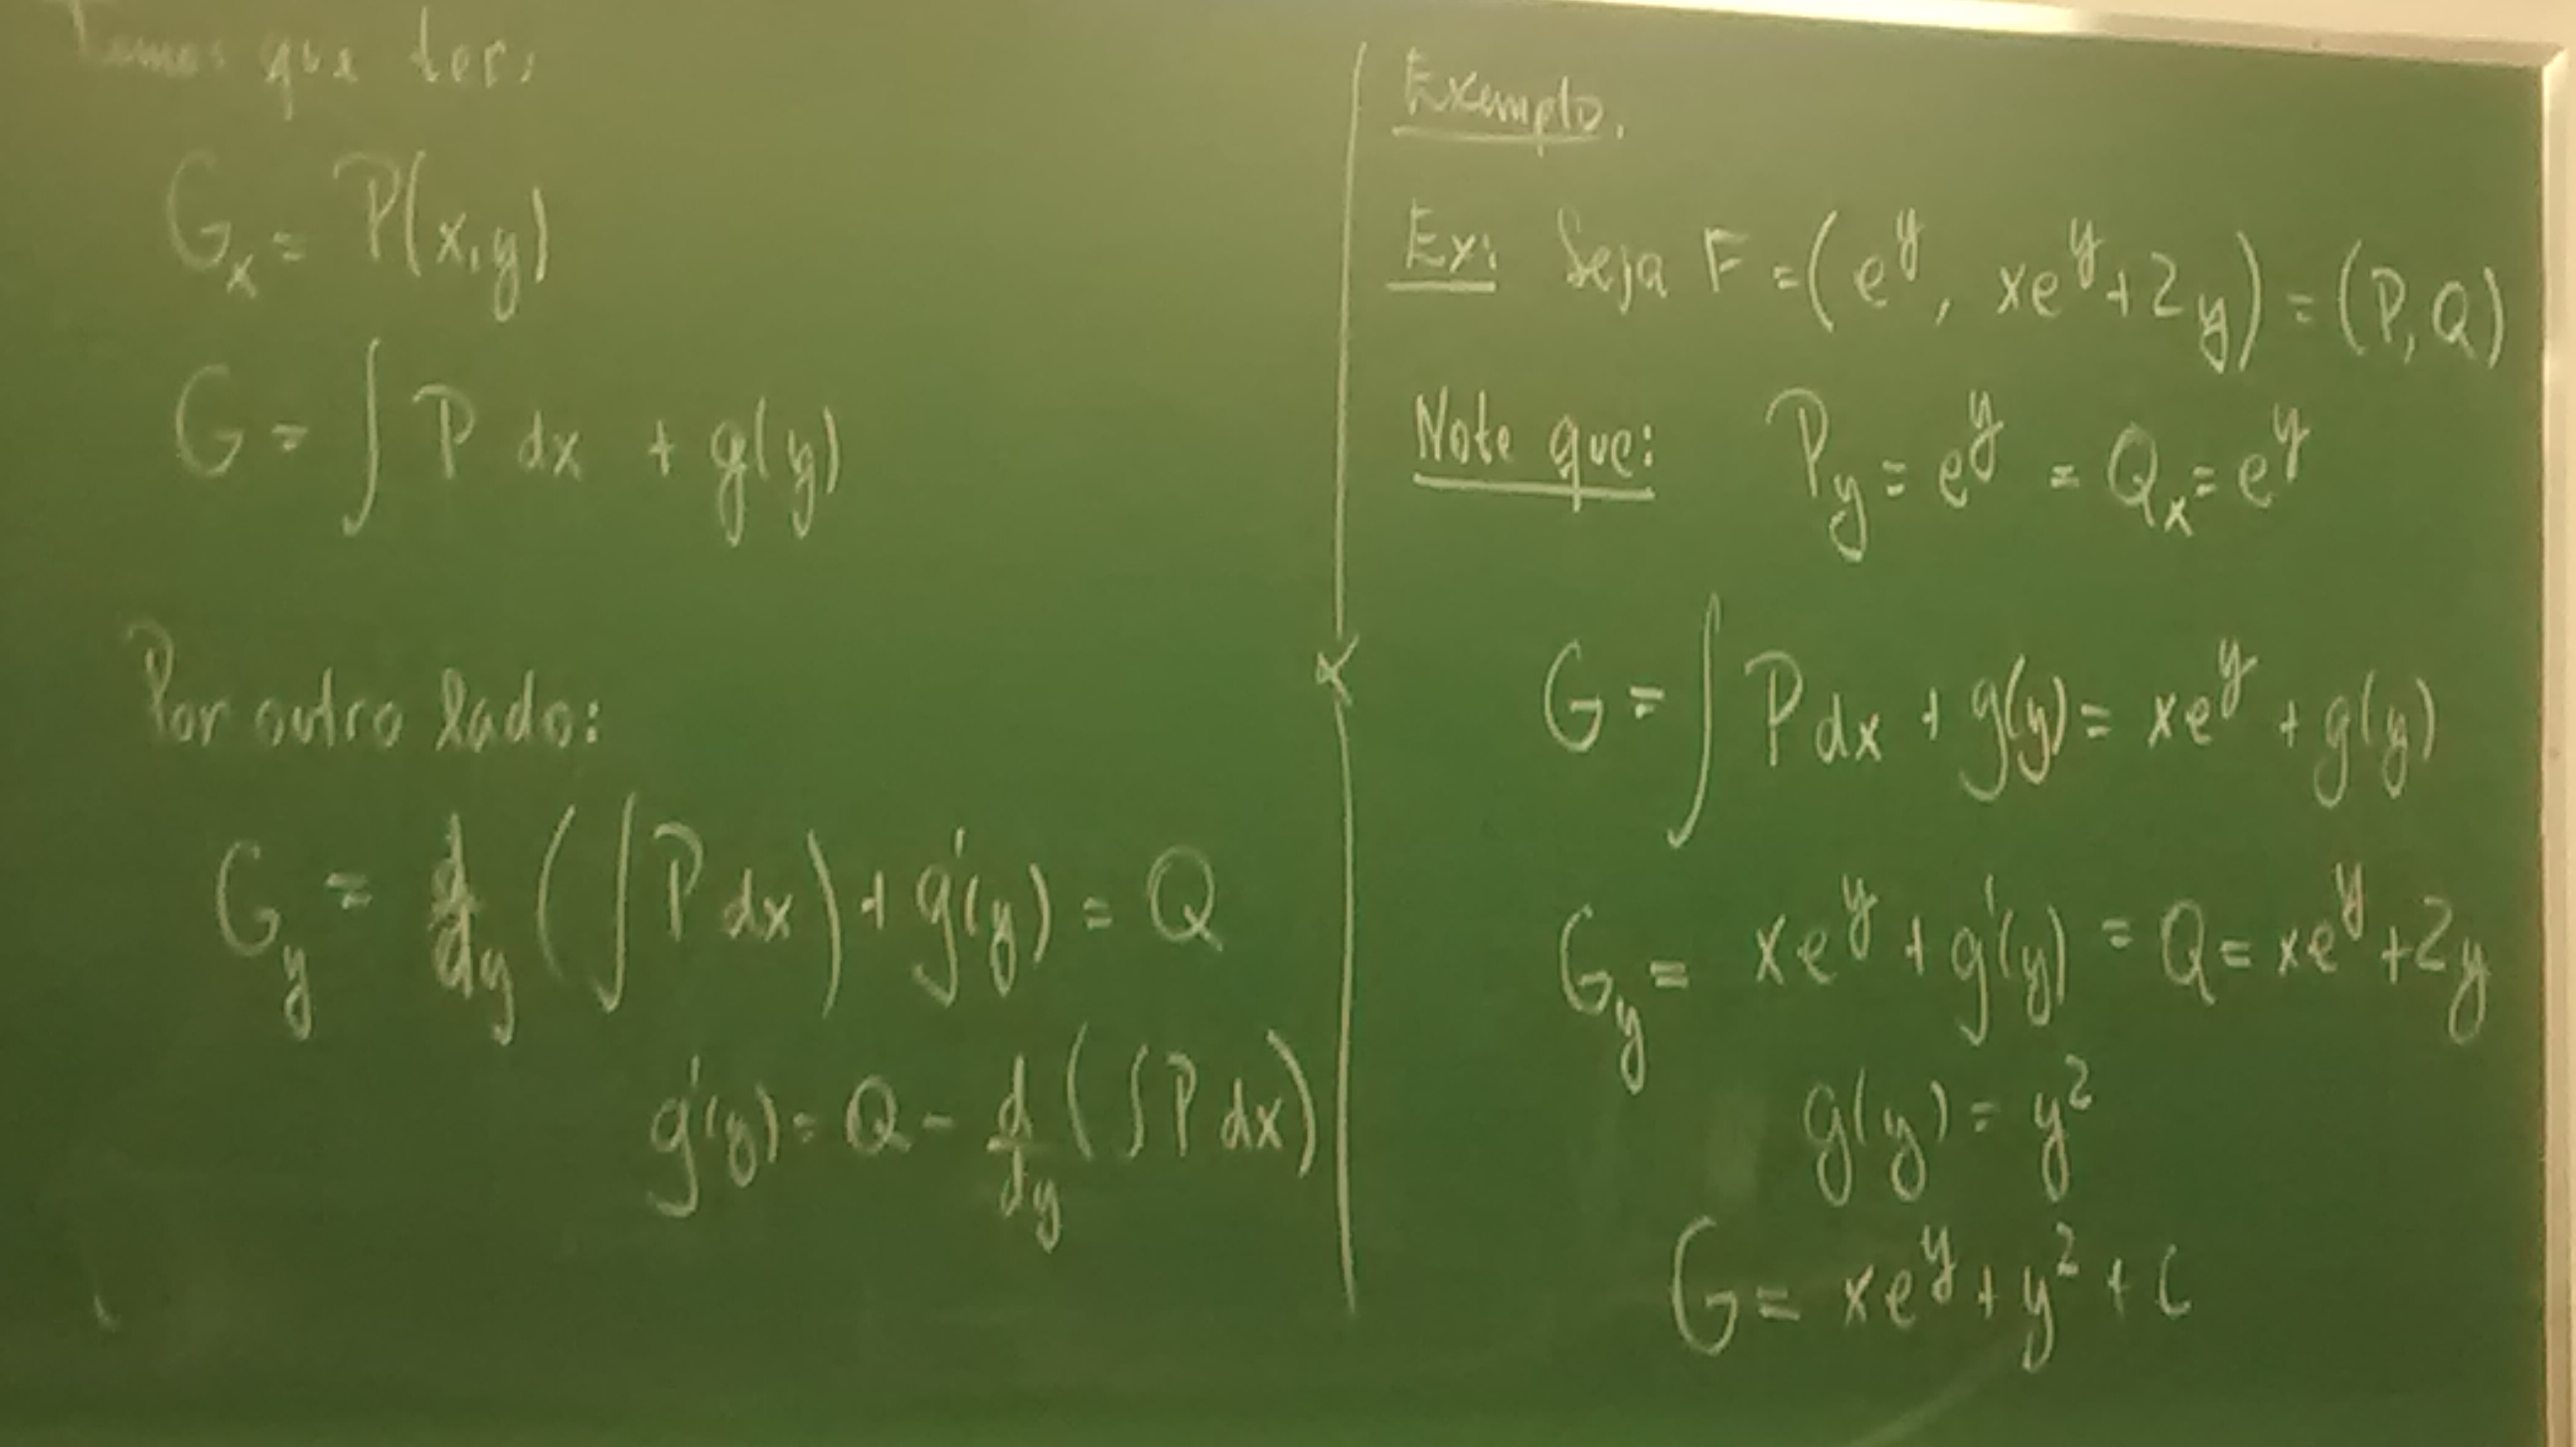 Temos que ter:
G_x = P(x,y)
G = ∫ P dx + g(y)
Por outro lado:
G_y = d/dy (∫ P dx) + g'(y) = Q
g'(y) = Q - d/dy (∫ P dx)
Exemplo.
Ex: Seja F = (e^y, xe^y + 2y) = (P, Q)
Note que: P_y = e^y = Q_x = e^y
G = ∫ P dx + g(y) = xe^y + g(y)
G_y = xe^y + g'(y) = Q = xe^y + 2y
g(y) = y^2
G = xe^y + y^2 + C